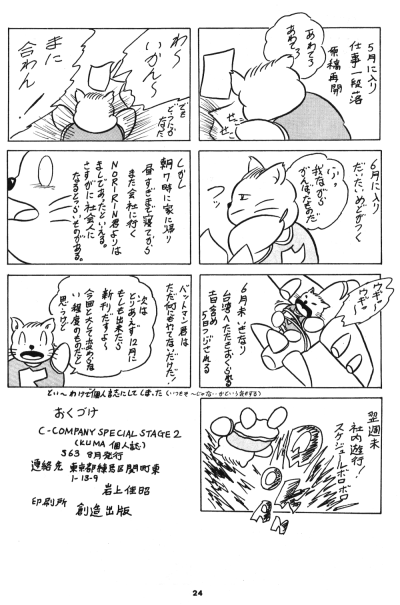 5月に入り
仕事一段落
原稿再開
あわてろ
あわてろ
せこ
せこ
わ〜
いかん〜
まに
合わん!
6月に入り
だいたいめどがつく
ふっ
我ながら
がんばったものだ
しかし
朝7時に家に帰り
昼すぎまで寝てから
また会社に行く
NORIRIN君よりは
ましであったといえる。
さすがに社会人に
なるとつらいものがある。
6月末いきなり
台湾へたたきおくられる
土日含め
5日つぶされる
ウギー
ウギー
バットマン君は
ただ何もやてないだけだ!
次は
とりあえず12月に
もしも出来たら
新刊だすよ〜
今回と大して変わらな
い程度のものだと
思うけど
翌週末
社内遊行!
スケジュールボロボロ
とい〜わけで個人誌にしてしまった
おくづけ
C-COMPANY SPECIAL STAGE 2
(KUMA 個人誌)
S63 8月発行
連絡先 東京都練馬区関町東
1-13-9
岩上佳昭
印刷所 創造出版
24